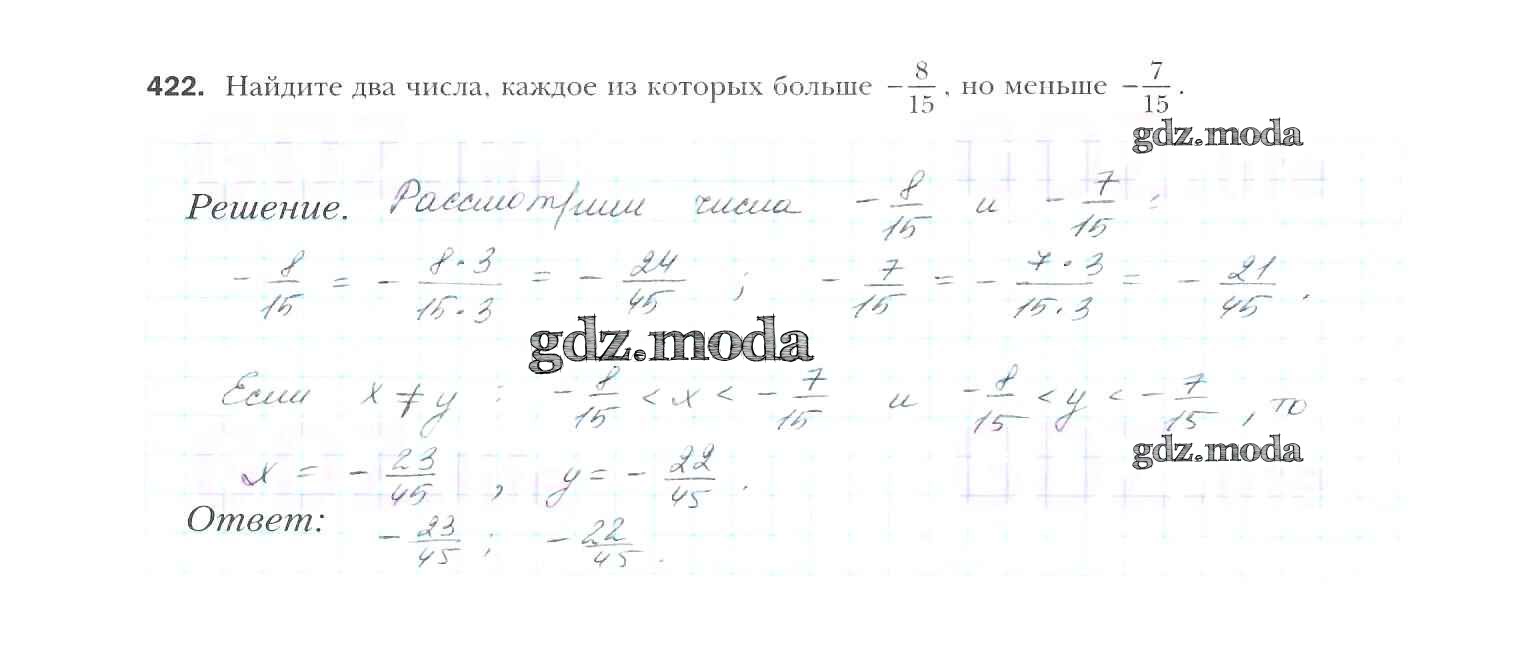 422. Найдите два числа, каждое из которых больше −8/15, но меньше −7/15.
gdz.moda
Решение. Рассмотрим числа −8/15 и −7/15:
−8/15 = −8·3/15·3 = −24/45; −7/15 = −7·3/15·3 = −21/45.
gdz.moda
Если x ≠ y : −8/15 < x < −7/15 и −8/15 < y < −7/15, то
gdz.moda
x = −23/45, y = −22/45.
Ответ: −23/45; −22/45.